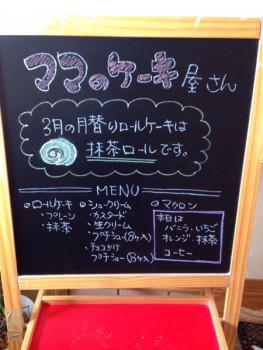 ママのケーキ屋さん
3月の月替りロールケーキは
抹茶ロールです。
MENU
ロールケーキ
・プレーン
・抹茶
シュークリーム
・カスタード
・生クリーム
・プチシュー(8ヶ入)
・チョコがけ
プチシュー(8ヶ入)
マカロン
本日は
バニラ・いちご
オレンジ・抹茶
コーヒー